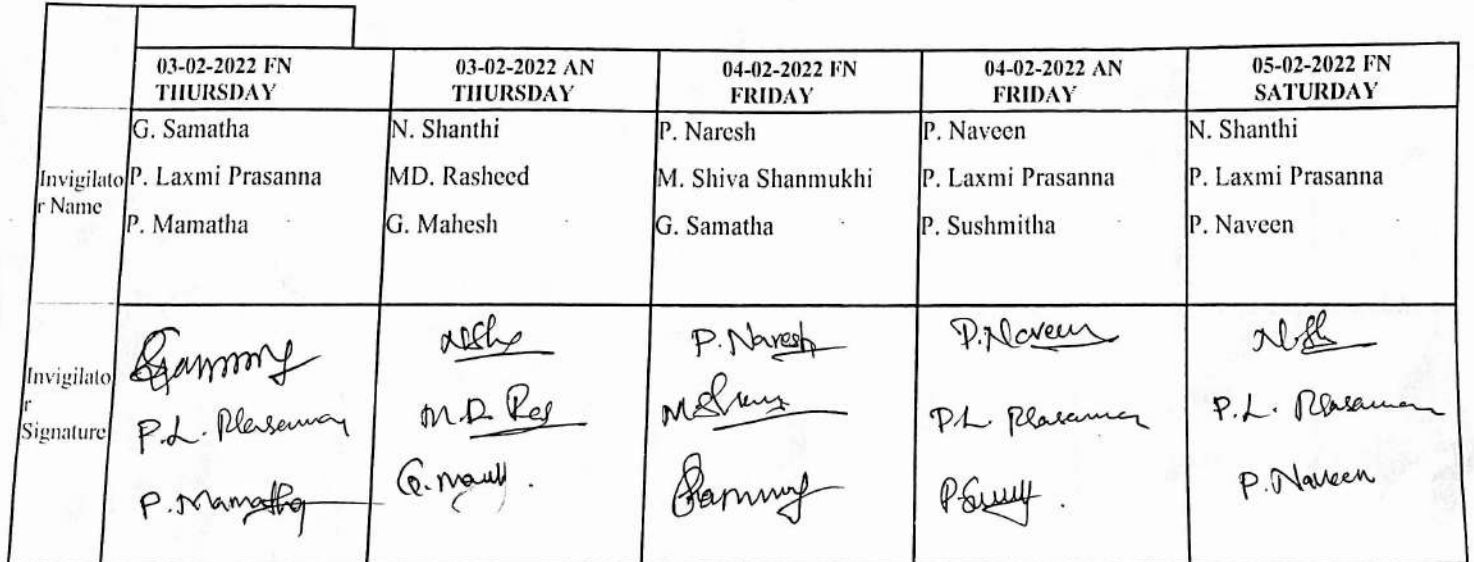 03-02-2022 FN
THURSDAY
03-02-2022 AN
THURSDAY
04-02-2022 FN
FRIDAY
04-02-2022 AN
FRIDAY
05-02-2022 FN
SATURDAY
Invigilato
r Name
G. Samatha
P. Laxmi Prasanna
P. Mamatha
N. Shanthi
MD. Rasheed
G. Mahesh
P. Naresh
M. Shiva Shanmukhi
G. Samatha
P. Naveen
P. Laxmi Prasanna
P. Sushmitha
N. Shanthi
P. Laxmi Prasanna
P. Naveen
Invigilato
r
Signature
P.L.
P. Mamatha
M.D.
P. Naresh
P. Naveen
P.L.
P.L.
P. Naveen